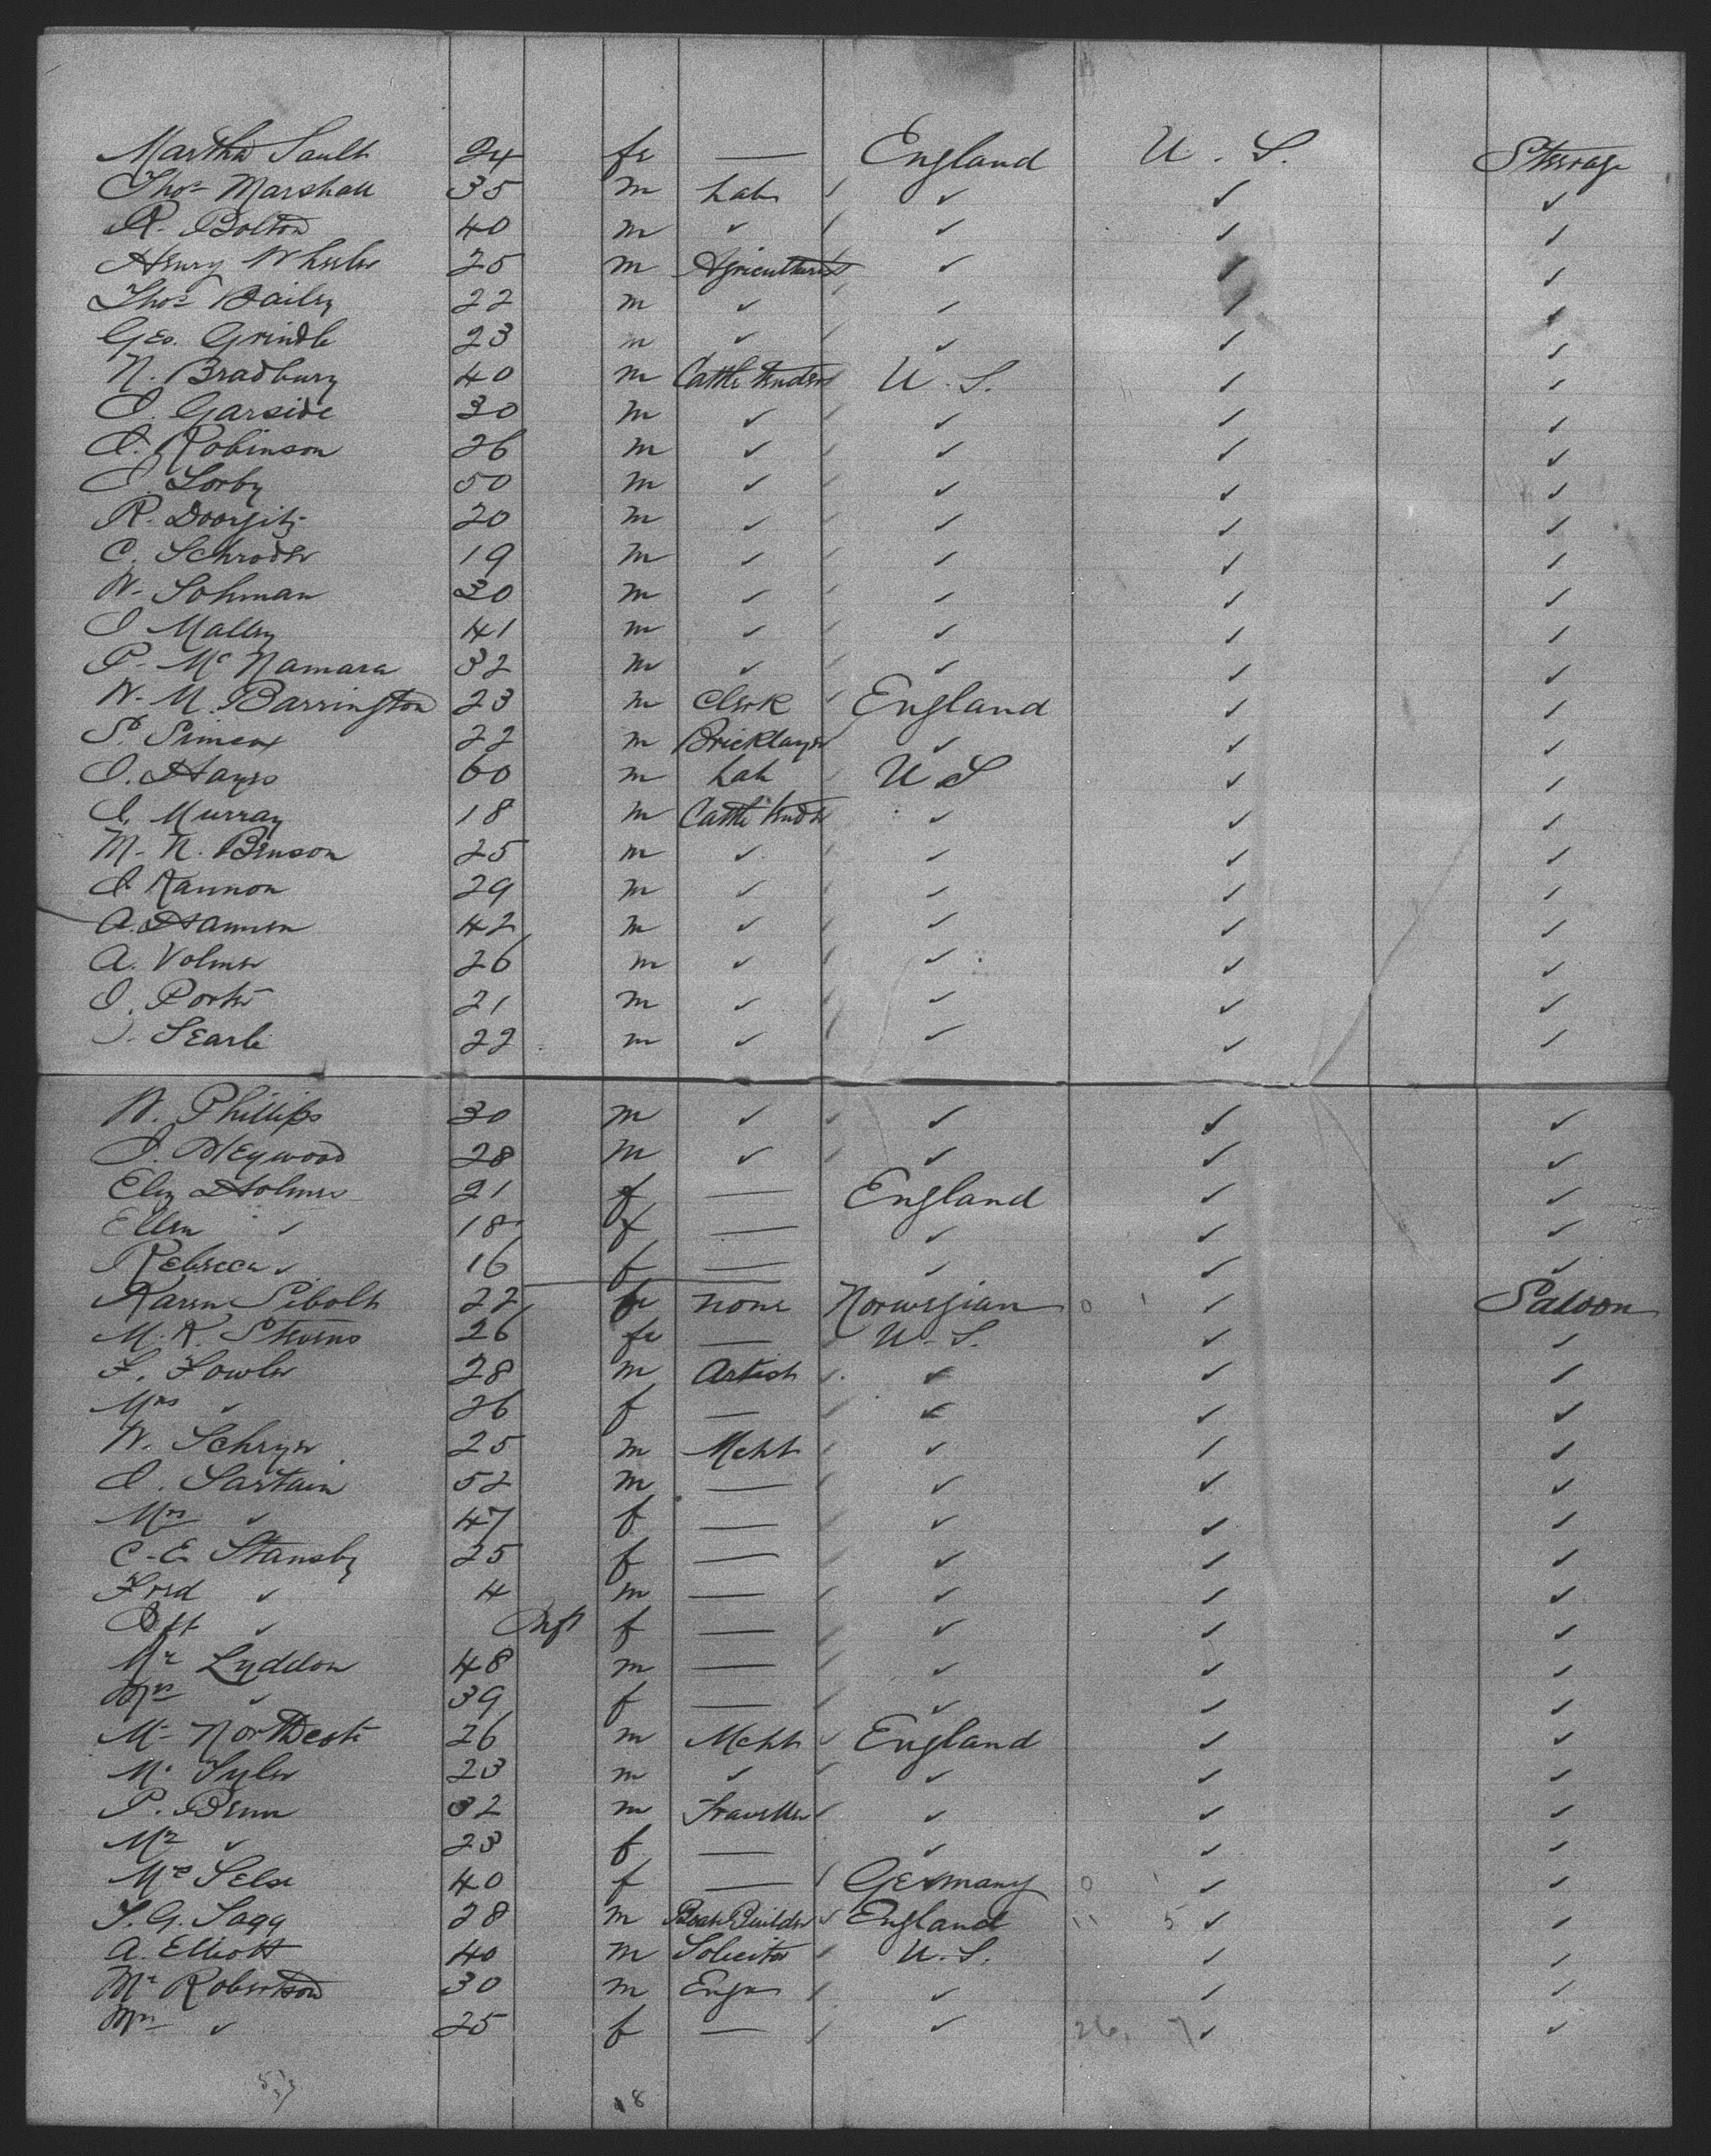 Martha Sault 24 fe — England U. S. Steerage
Thos Marshall 35 m Lab ✓ ✓ ✓ ✓
R. Bolton 40 m ✓ ✓ ✓ ✓ ✓
Henry Wheeler 25 m Agriculturist ✓ ✓ ✓
Thos Bailey 22 m ✓ ✓ ✓ ✓
Geo. Grindle 23 m ✓ ✓ ✓ ✓ ✓
N. Bradbury 40 m Cattle tenders U. S. ✓ ✓
J. Garside 30 m ✓ ✓ ✓ ✓ ✓
J. Robinson 26 m ✓ ✓ ✓ ✓ ✓
J Sorby 50 m ✓ ✓ ✓ ✓ ✓
R. 20 m ✓ ✓ ✓ ✓ ✓
C. Schroder 19 m ✓ ✓ ✓ ✓ ✓
W. Sohman 30 m ✓ ✓ ✓ ✓ ✓
J Malley 41 m ✓ ✓ ✓ ✓ ✓
P. Mc Namara 32 m ✓ ✓ ✓ ✓ ✓
W. M. Barrington 23 m Clerk ✓ England ✓ ✓
S. Simcox 22 m Bricklayer ✓ ✓ ✓
J. Hayes 60 m Lab ✓ U S ✓ ✓
J. Murray 18 m Cattle tender ✓ ✓ ✓
M. N. Benson 25 m ✓ ✓ ✓ ✓ ✓
J. Kannon 29 m ✓ ✓ ✓ ✓ ✓
A. Hannen 42 m ✓ ✓ ✓ ✓ ✓
A. Volmer 26 m ✓ ✓ ✓ ✓ ✓
J. Porter 21 m ✓ ✓ ✓ ✓ ✓
J. Searle 22 m ✓ ✓ ✓ ✓ ✓
W. Phillips 30 m ✓ ✓ ✓ ✓ ✓
J. Heywood 28 m ✓ ✓ ✓ ✓ ✓
Eliz Holmes 21 f — England ✓ ✓
Ellen ✓ 18 f — ✓ ✓ ✓
Rebecca ✓ 16 f — ✓ ✓ ✓
Karen Sibolt 22 fe none Norwegian ✓ Saloon
M. K. Stevens 26 fe — U. S. ✓ ✓
F. Fowler 28 m Artist ✓ ✓ ✓ ✓
Mrs ✓ 26 f — ✓ ✓ ✓ ✓
W. Schryer 25 m Mcht ✓ ✓ ✓ ✓
J. Sartain 52 m — ✓ ✓ ✓ ✓
Mrs ✓ 47 f — ✓ ✓ ✓ ✓
C. E. Stansby 25 f — ✓ ✓ ✓ ✓
Fred ✓ 4 m — ✓ ✓ ✓ ✓
✓ Inft f — ✓ ✓ ✓ ✓
Mr Lyddon 48 m — ✓ ✓ ✓ ✓
Mrs ✓ 39 f — ✓ ✓ ✓ ✓
Mr Northcote 26 m Mcht ✓ England ✓ ✓
Mr Tyler 23 m ✓ ✓ ✓ ✓ ✓
P. Benn 32 m Traveller ✓ ✓ ✓ ✓
Mrs ✓ 23 f — ✓ ✓ ✓
Mrs Selse 40 f — Germany 0 ✓ ✓
T. G. Sagg 28 m Boat Builder ✓ England 11 5 ✓ ✓
A. Elliott 40 m Solicitor ✓ U. S. ✓ ✓
Mr Robertson 30 m Engr ✓ ✓ ✓ ✓
Mrs ✓ 25 f — ✓ ✓ 26 7 ✓ ✓